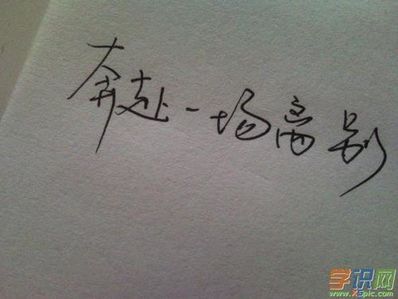 奔赴一场离别
学识网
www.xspic.com